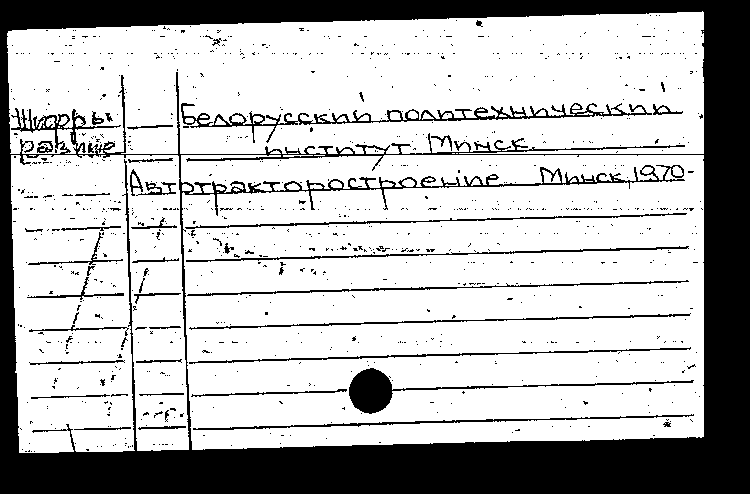 Шифры Белорусский политехнический
разные институт. Минск.
Автотракторостроение Минск, 1970-